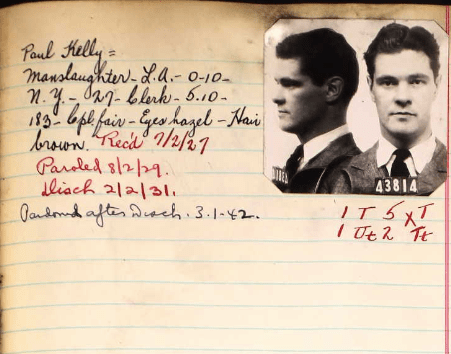 Paul Kelly =
Manslaughter - L.A. - 0-10 -
N.Y. - 27 - Clerk - 5.10 -
183 - Cpl fair - Eyes hazel - Hair
brown. Rec'd 7/2/27
Paroled 8/2/29.
Disch 2/2/31.
Pardoned after Disch. 3.1-42.
43814
1 T 5 x T
1 Ut 2 Tt